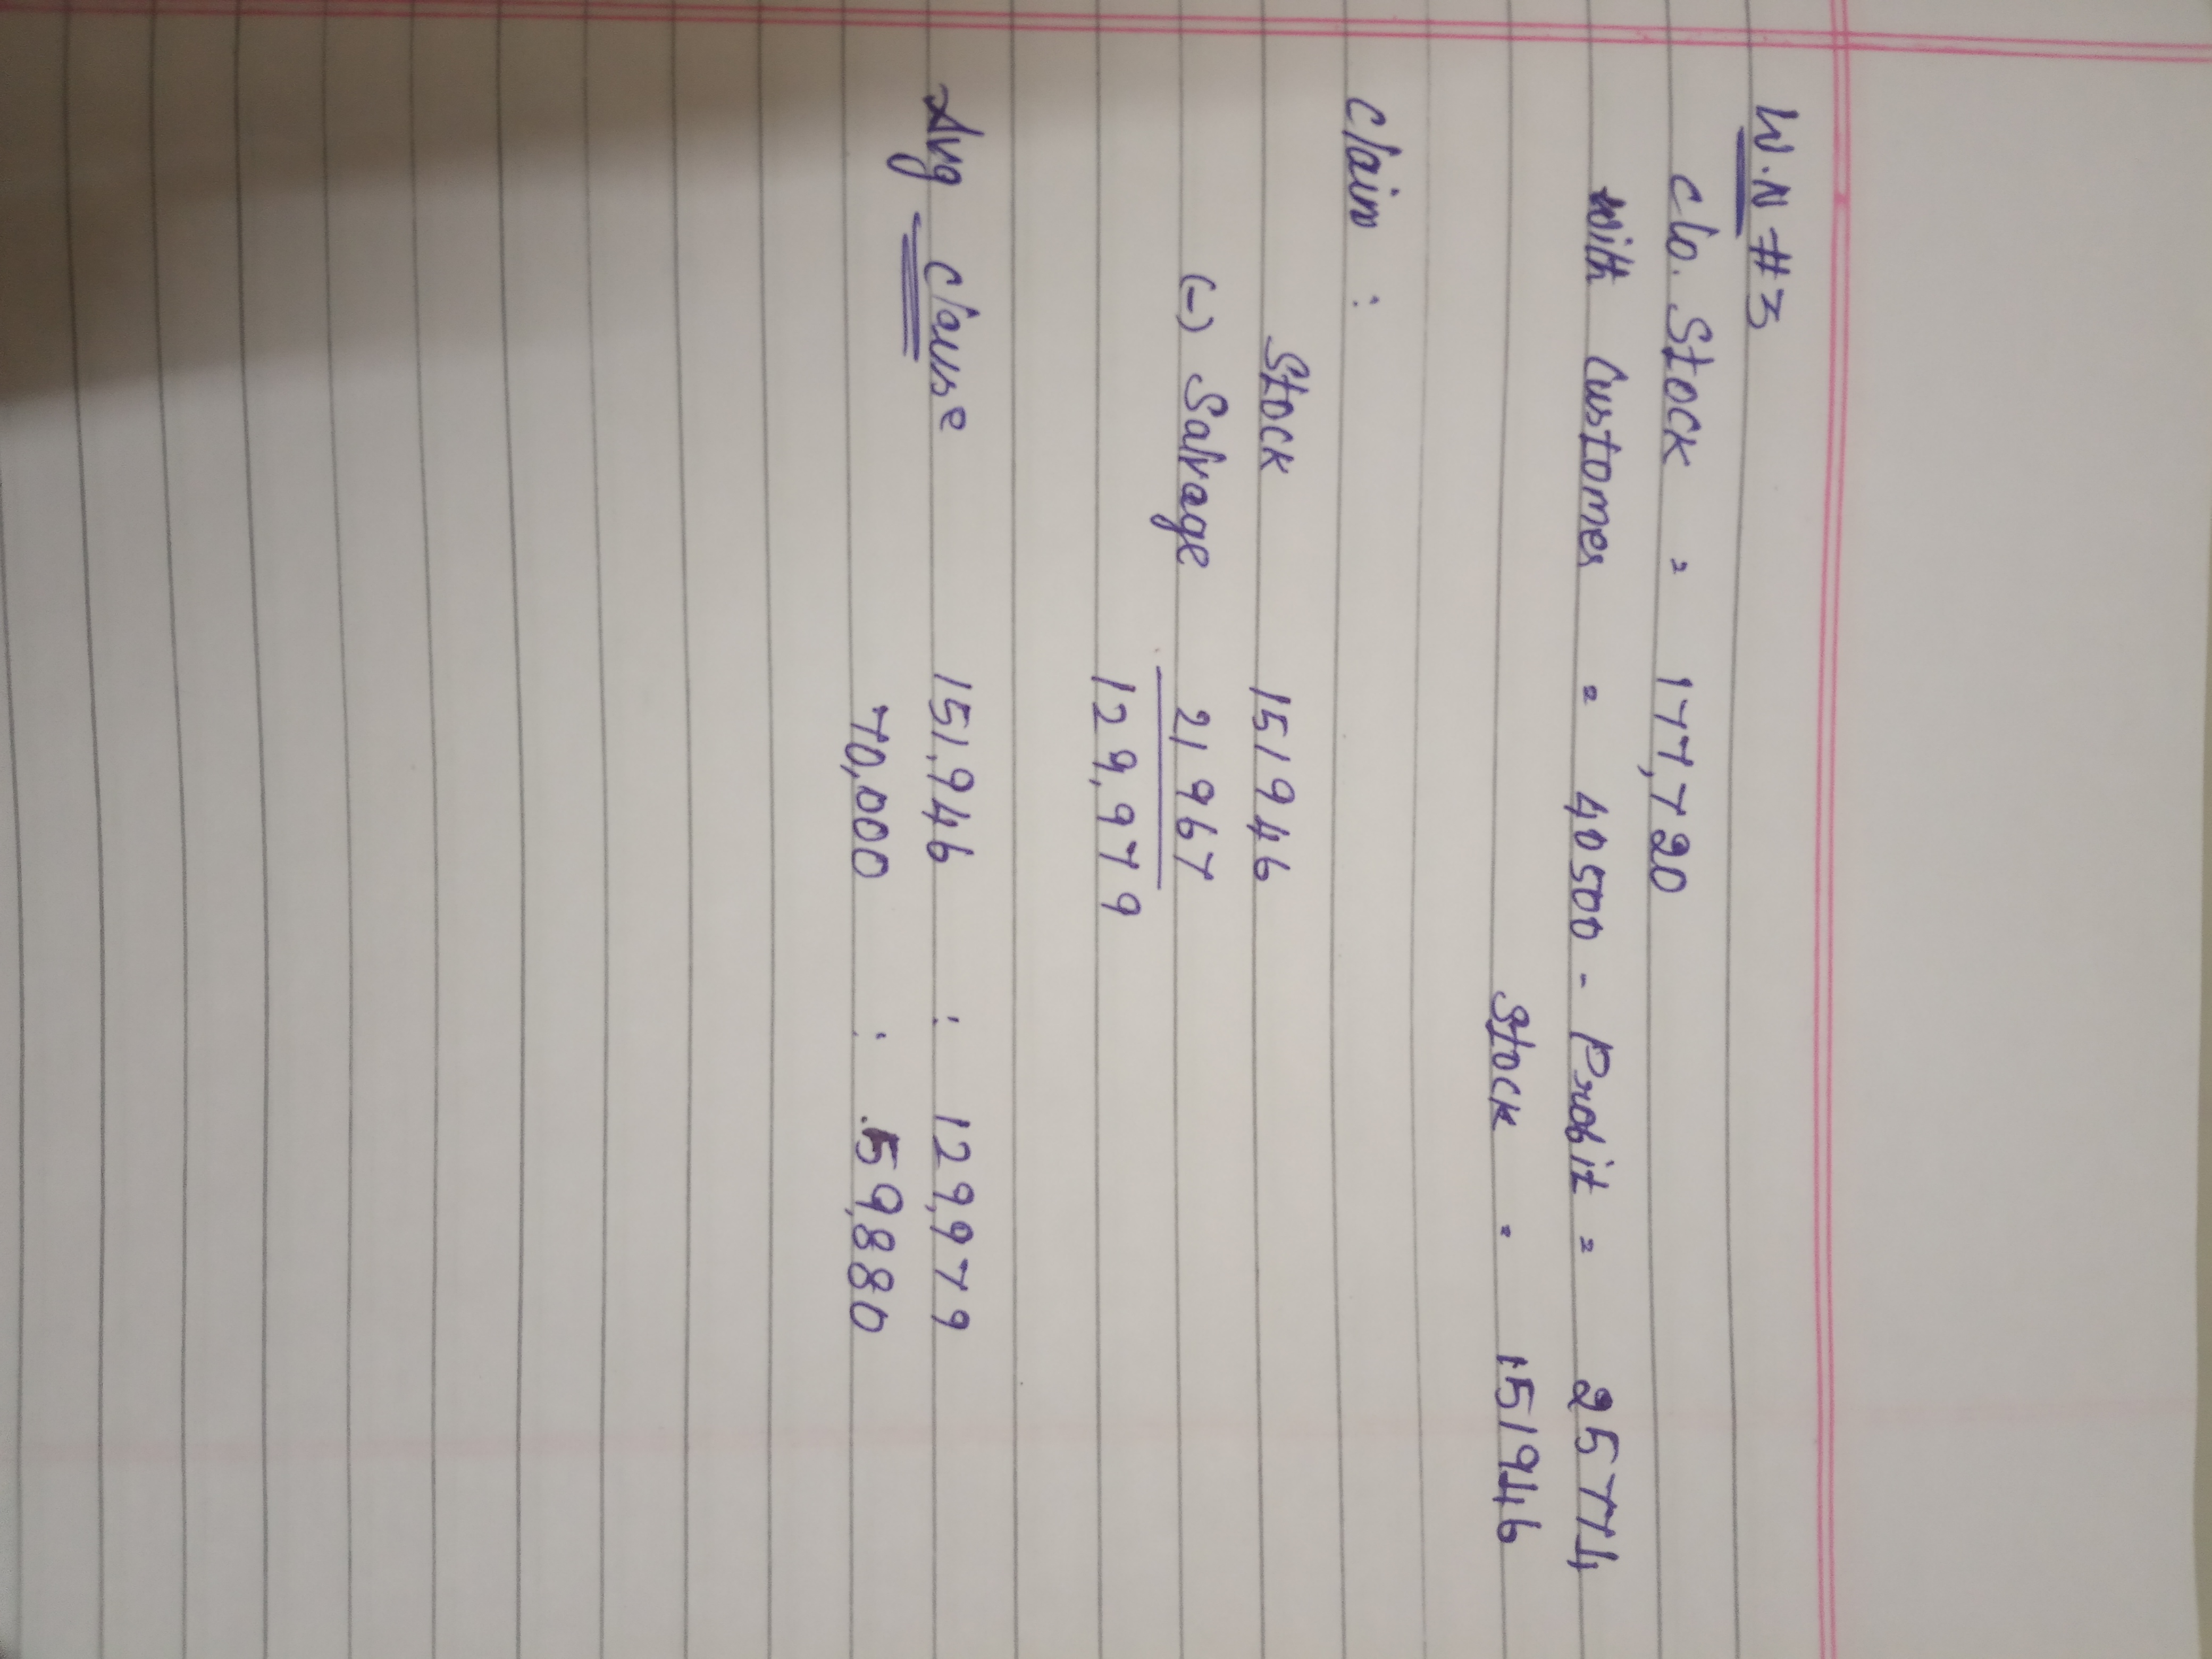 W.N #3
Clo. Stock = 177,720
With Customer = 40500 - Profit = 25774
Stock = 151946
Claim :
Stock 151946
(-) Salvage 21967
129,979
Avg Clause 151,946 : 129,979
70,000 : 59,880